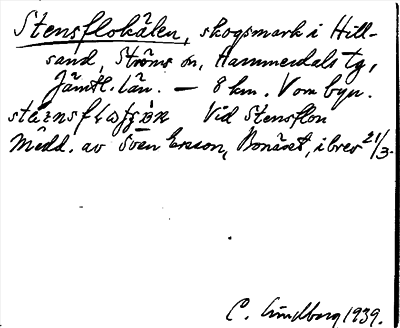 Stensflokälen, skogsmark i Hill-
sand, Ströms sn, Hammerdals tg,
Jämtl. län. — 8 km. V om byn.
Vid Stensflon
Medd. av Sven Ersson, Bonäset, i brev 21/3.
C. Lindberg 1939.